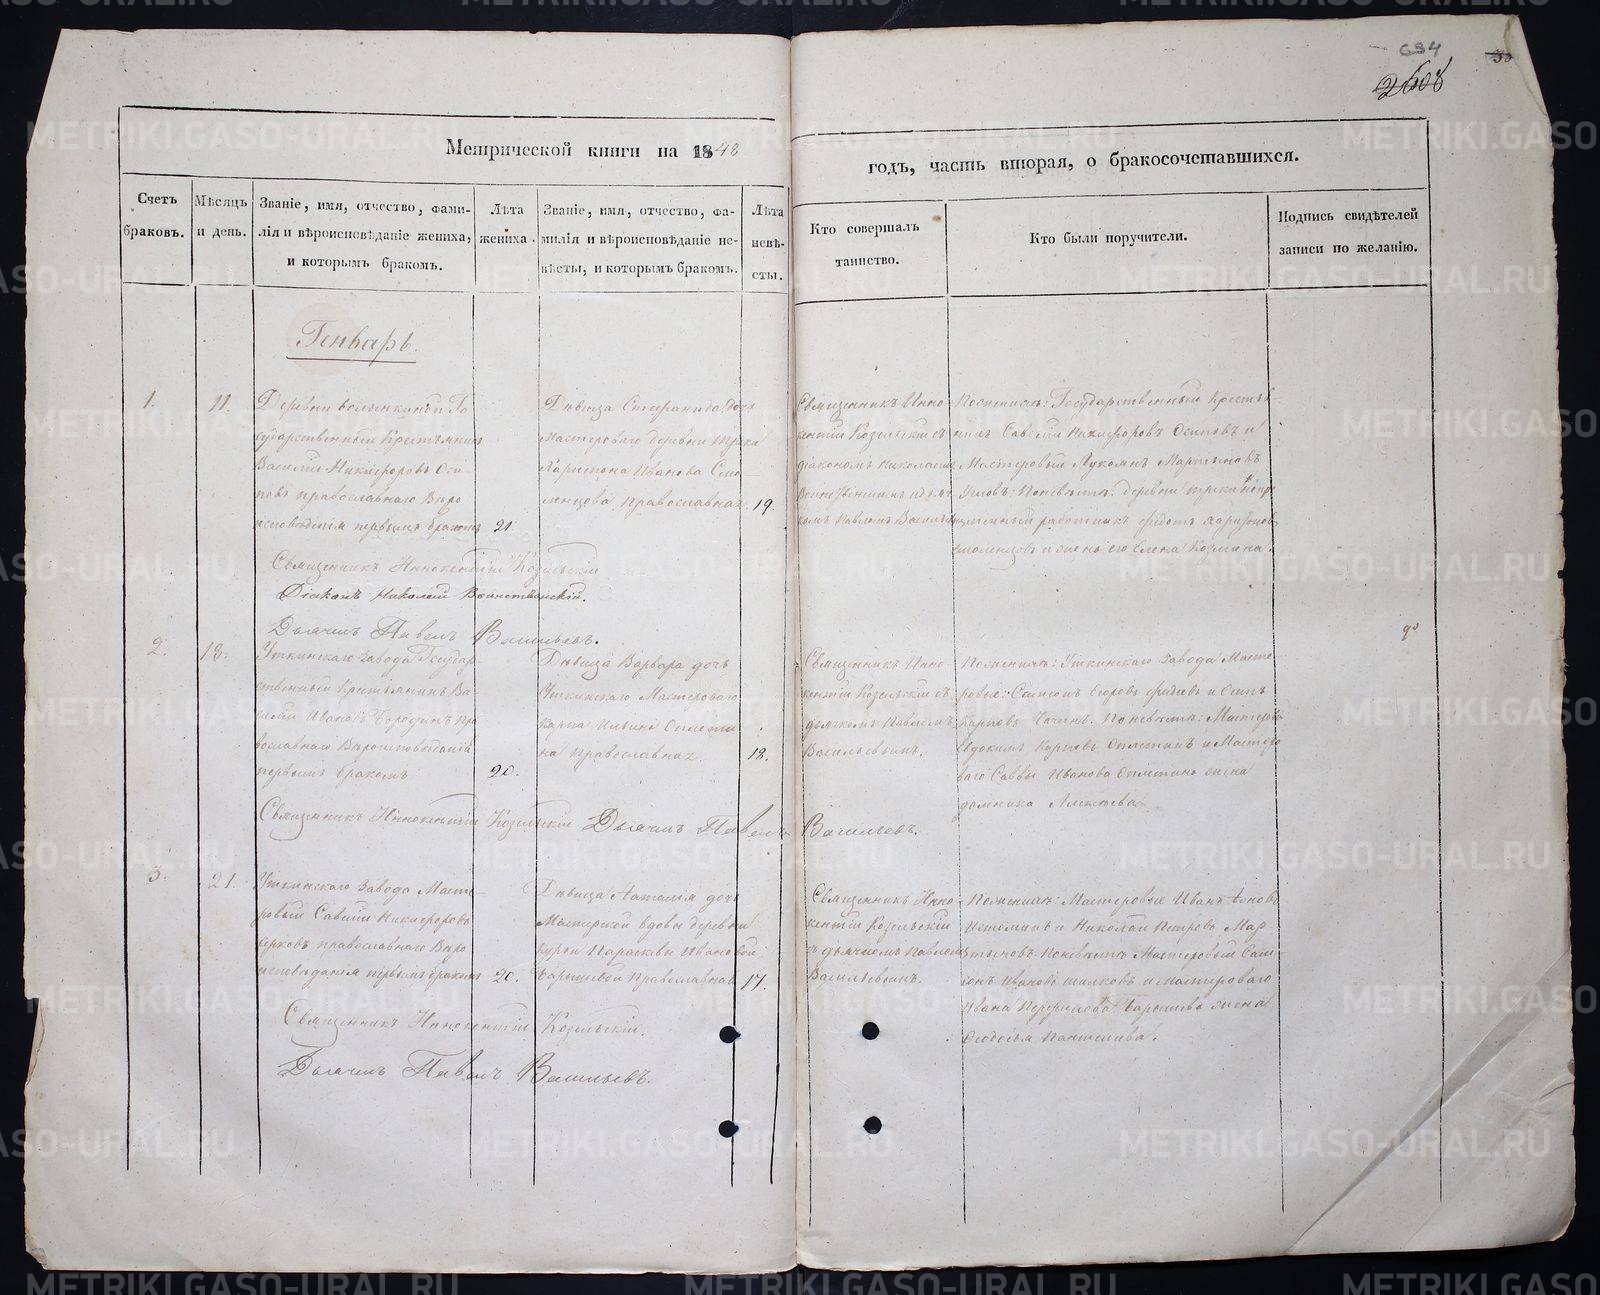 694
38
2608
Метрической книги на 1848
годъ, часть вторая, о бракосочетавшихся.
Счетъ браковъ.
Мѣсяцъ и день.
Званіе, имя, отчество, фами-
лія и вѣроисповѣданіе жениха,
и которымъ бракомъ.
Лѣта
жениха.
Званіе, имя, отчество, фа-
милія и вѣроисповѣданіе не-
вѣсты, и которымъ бракомъ.
Лѣта
невѣ-
сты.
Кто совершалъ
таинство.
Кто были поручители.
Подпись свидѣтелей
записи по желанію.
Генварь.
1.
11.
Деревни Го
сударственный Крестьянинъ
Василій Никифоровъ Оси
повъ православнаго Вѣро
исповѣданія первымъ бракомъ
21.
Дѣвица Стефанида дочь
Мастероваго деревни
Харитона Иванова Смо
ленцова Православная
19.
Священникъ Инно
кентій Козельскій съ
діакономъ Николаемъ
комъ Павломъ Василье
Пожениху: Государственный Кресть
Савелій Никифоровъ Осиповъ и
Мастеровый Мартыновъ
Поневѣстѣ: деревни
работникъ Федотъ Харитоновъ
Смоленцовъ и жена его Елена Козмина.
Священникъ Иннокентій Козельскій
Діаконъ Николай Воинственскій.
Дьячикъ Павелъ Васильевъ.
2.
18.
Уткинскаго Завода Государ-
ственный Крестьянинъ Ва-
силій Ивановъ Бородинъ Пра
вославнаго Вѣроисповѣданія
первымъ бракомъ
20.
Дѣвица Варвара дочь
Уткинскаго Мастероваго
Карпа Ильина Оплети
на Православная.
18.
Священникъ Инно
кентій Козельскій съ
дьячкомъ Павломъ
Васильевымъ.
Пожениху: Уткинскаго Завода Масте-
ровые: Самсонъ Егоровъ и Осипъ
Карповъ Поневѣстѣ: Мастеров
Евдокимъ Карповъ Оплетинъ и Мастеро
ваго Саввы Иванова Оплетина жена
Домника Алексѣева.
Священникъ Иннокентій Козельскій Дьячикъ Павелъ Васильевъ.
3.
21.
Уткинскаго Завода Масте-
ровый Савелій Никифоровъ
православнаго Вѣро
исповѣданія первымъ бракомъ
20.
Дѣвица Наталія дочь
Мастерской вдовы деревни
Курьи Парасковьи Ивановой
Барышевой Православная
17.
Священникъ Инно
кентій Козельскій
съ дьячкомъ Павломъ
Васильевымъ.
Пожениху: Мастеровые Иванъ
Истоминъ и Николай Петровъ Мар
тыновъ Поневѣстѣ: Мастеровый Сам
сонъ Ивановъ и Мастероваго
Ивана Перфилова Барышева жена
Феодосья Пантелеева.
Священникъ Иннокентій Козельскій.
Дьячикъ Павелъ Васильевъ.
METRIKI.GASO-URAL.RU